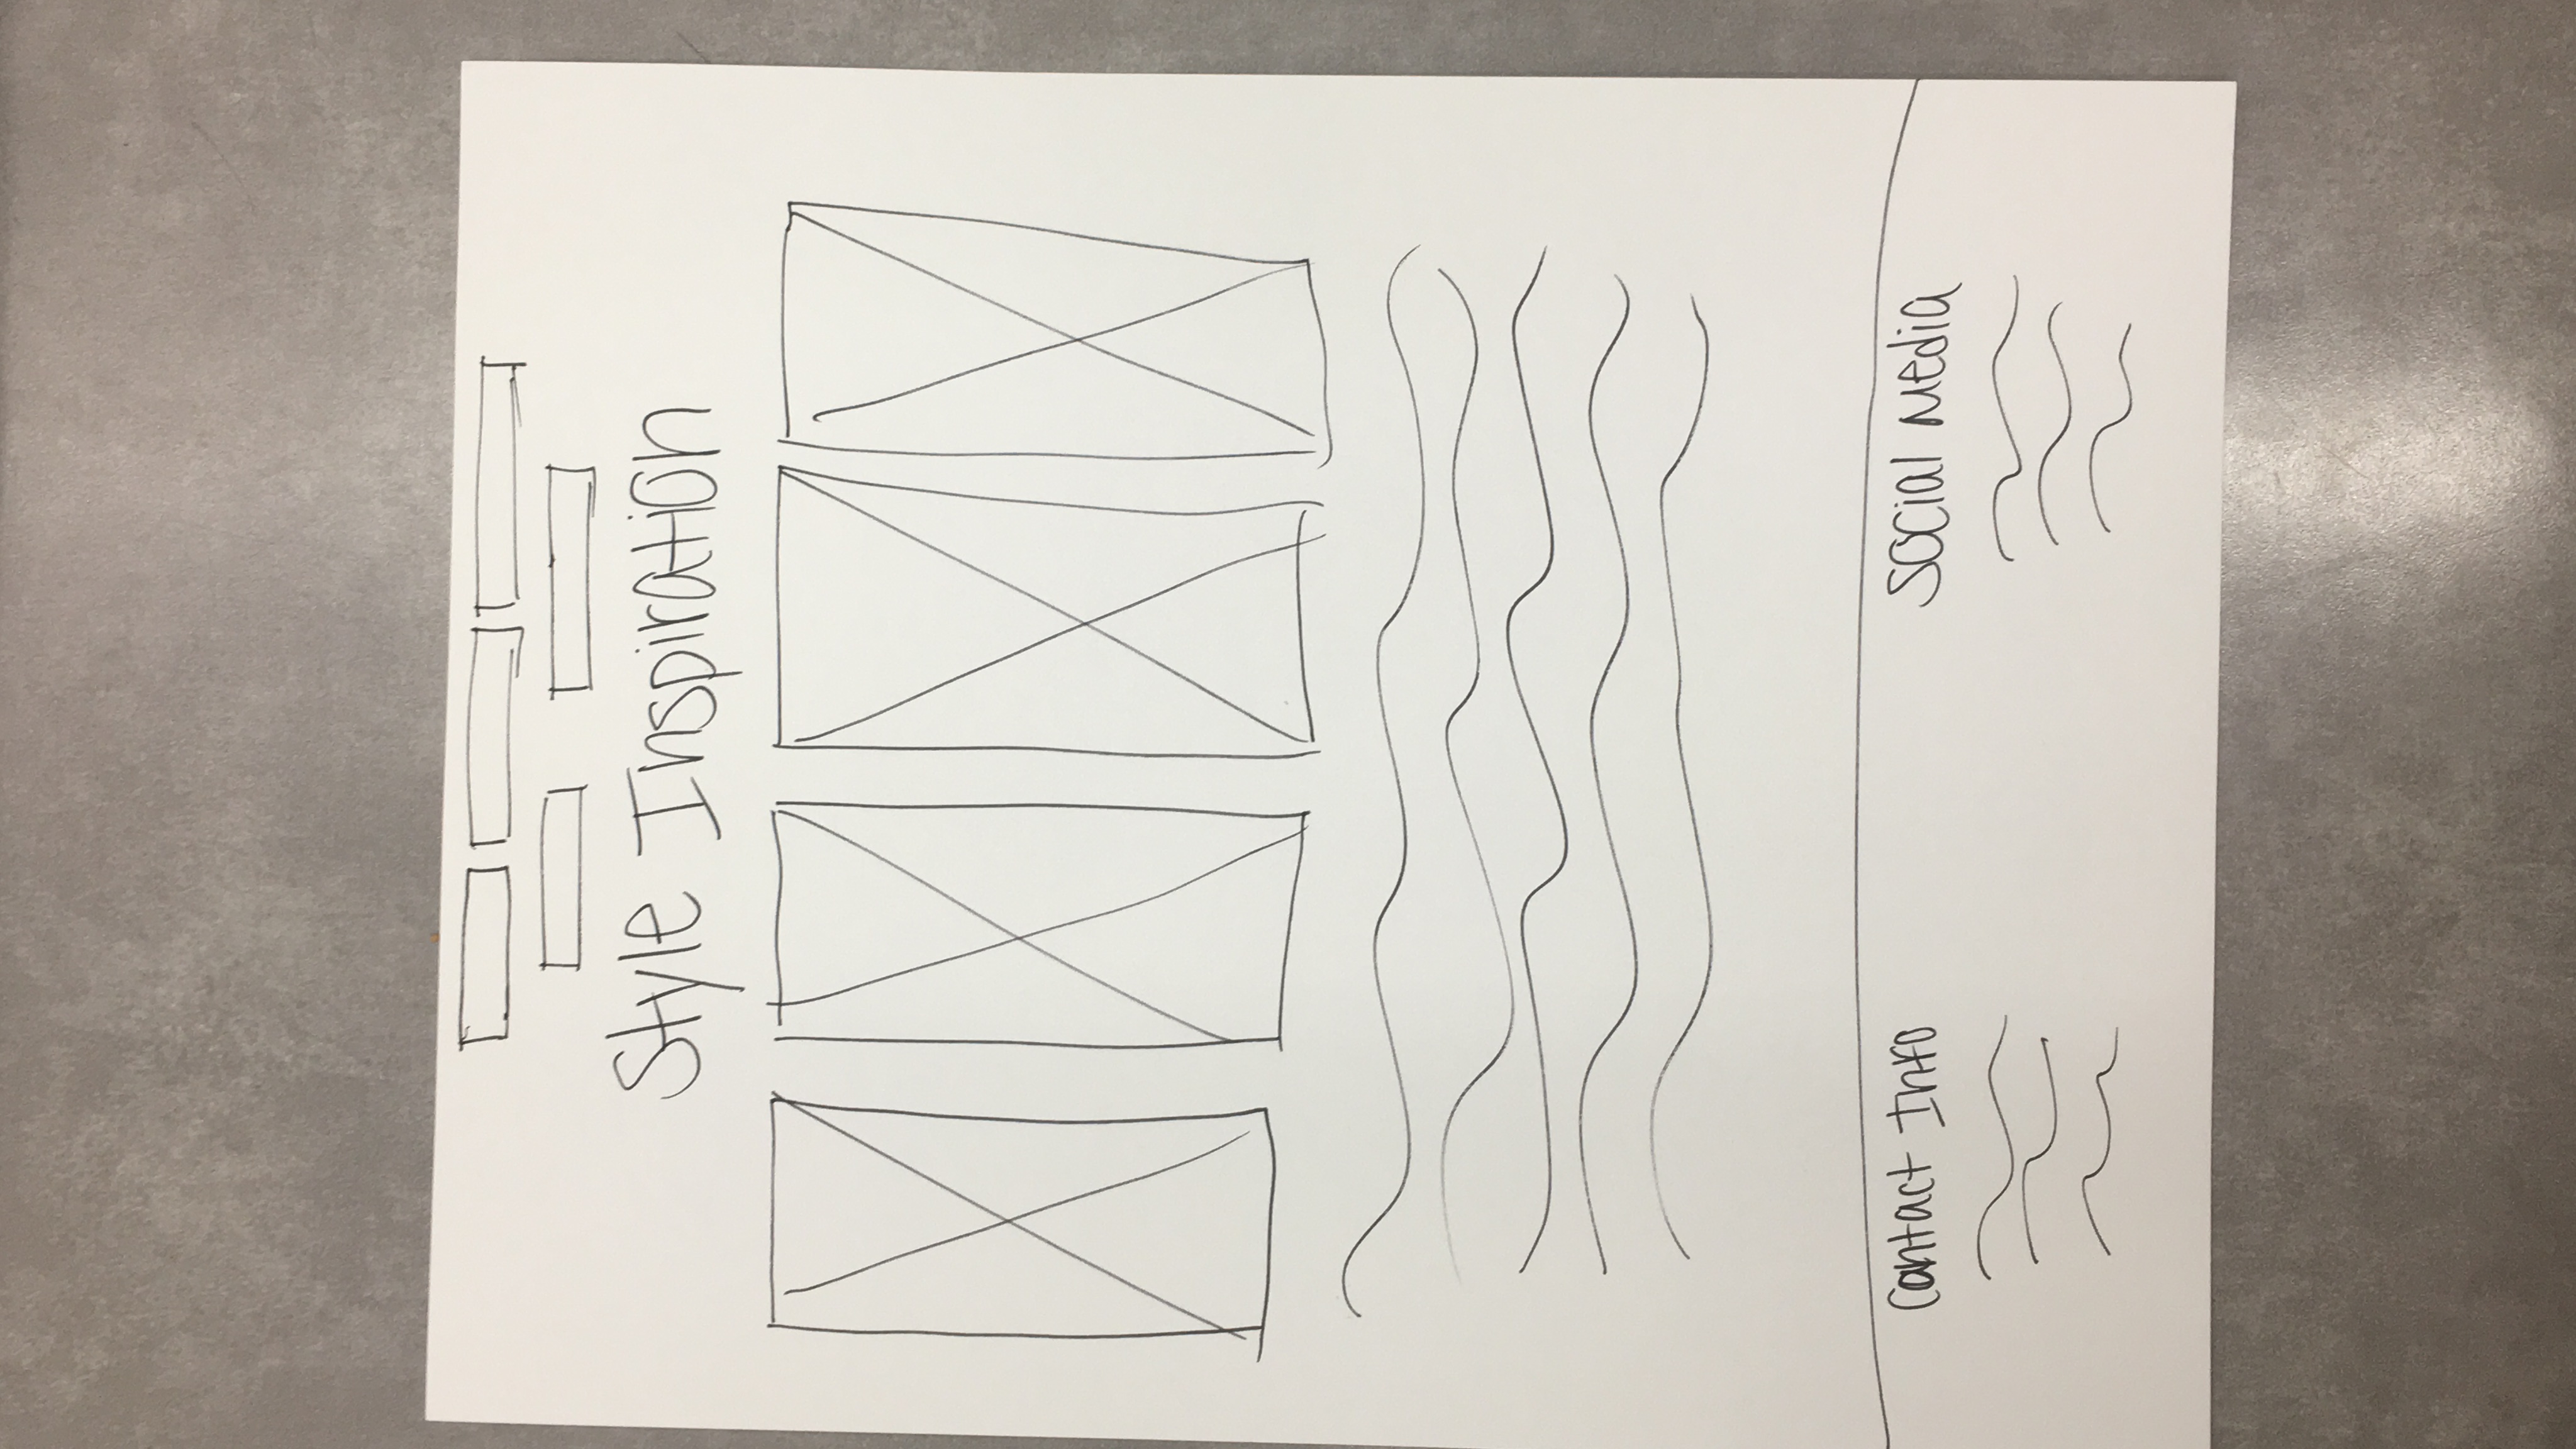 Style Inspiration
Contact Info
Social Media